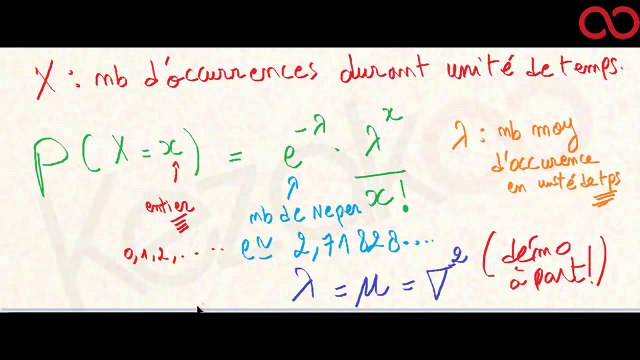 X : nb d'occurrences durant unité de temps.
P(X = x) = e^{-λ} · λ^x / x!
λ : nb moy
d'occurence
en unité de tps
entier
0, 1, 2, ....
nb de Neper
e ≃ 2,71828....
λ = μ = ∇²
(démo
à part!)